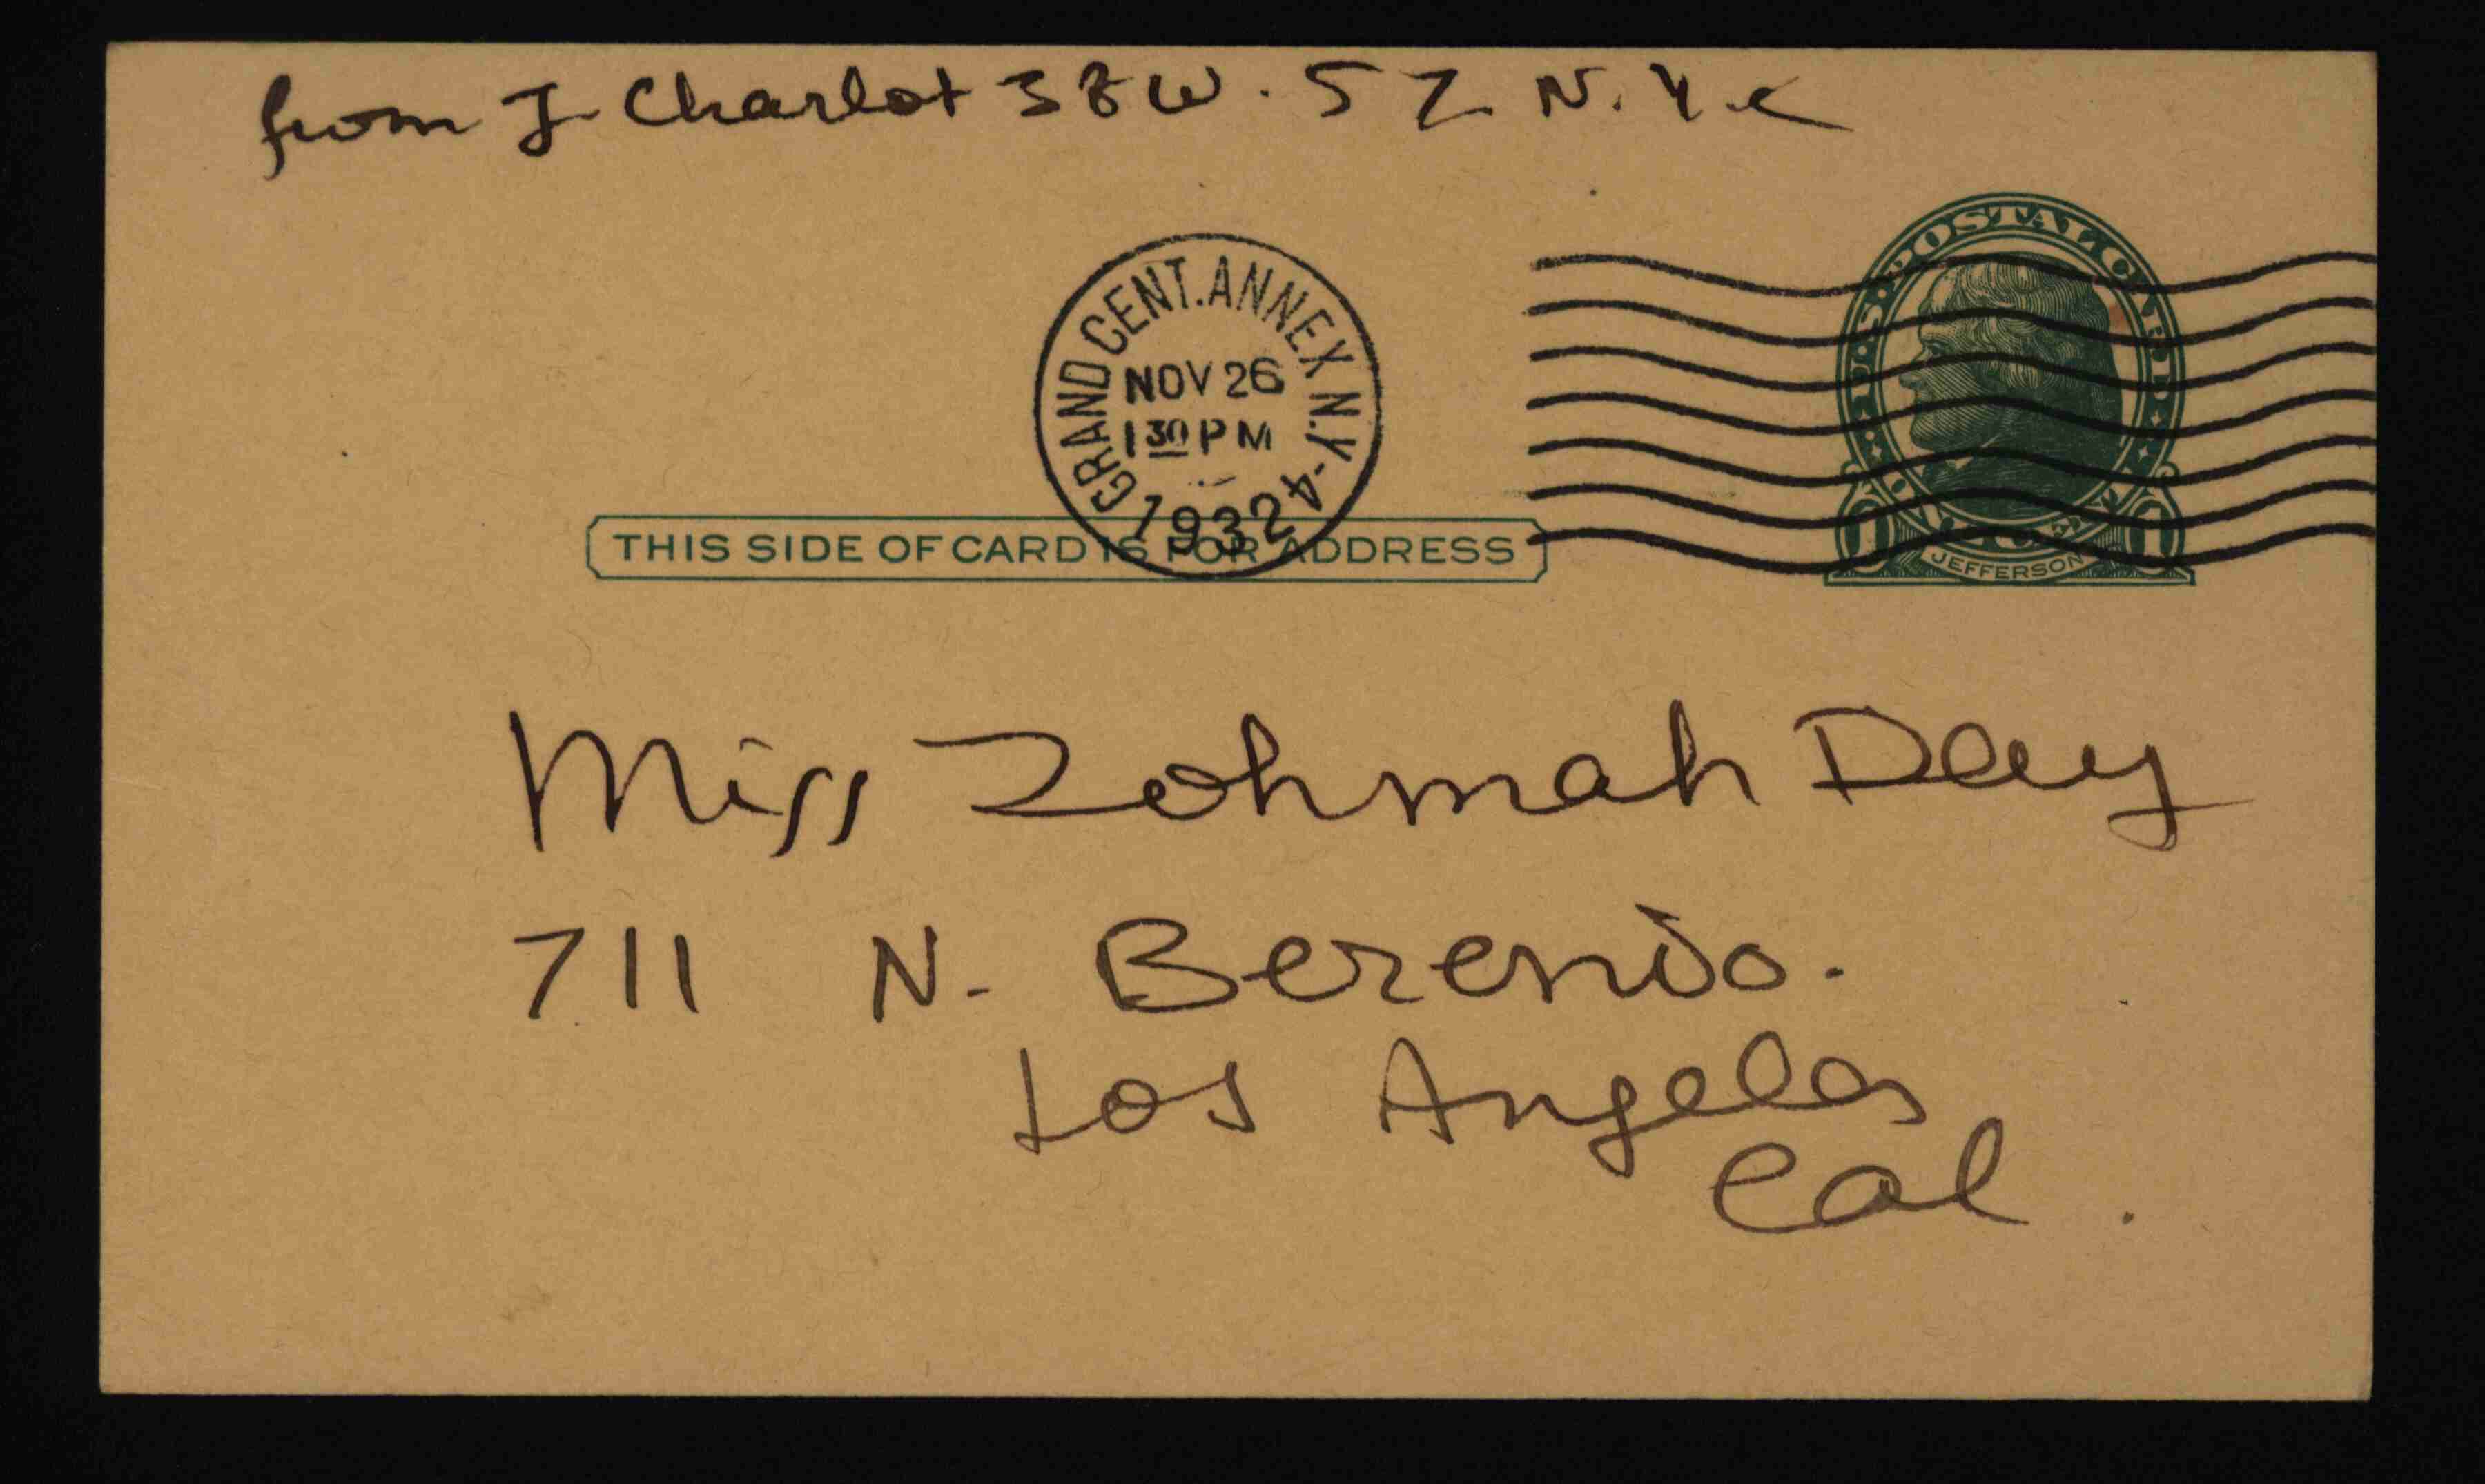 from J. Charlot 38 W. 57 N.Y.C
GRAND CENT. ANNEX N.Y. 4
NOV 26
1 30 PM
1932
U.S. POSTAL CARD
1 1
JEFFERSON
THIS SIDE OF CARD IS FOR ADDRESS
Miss Zohmah Day
711 N. Berendo.
Los Angeles
Cal.